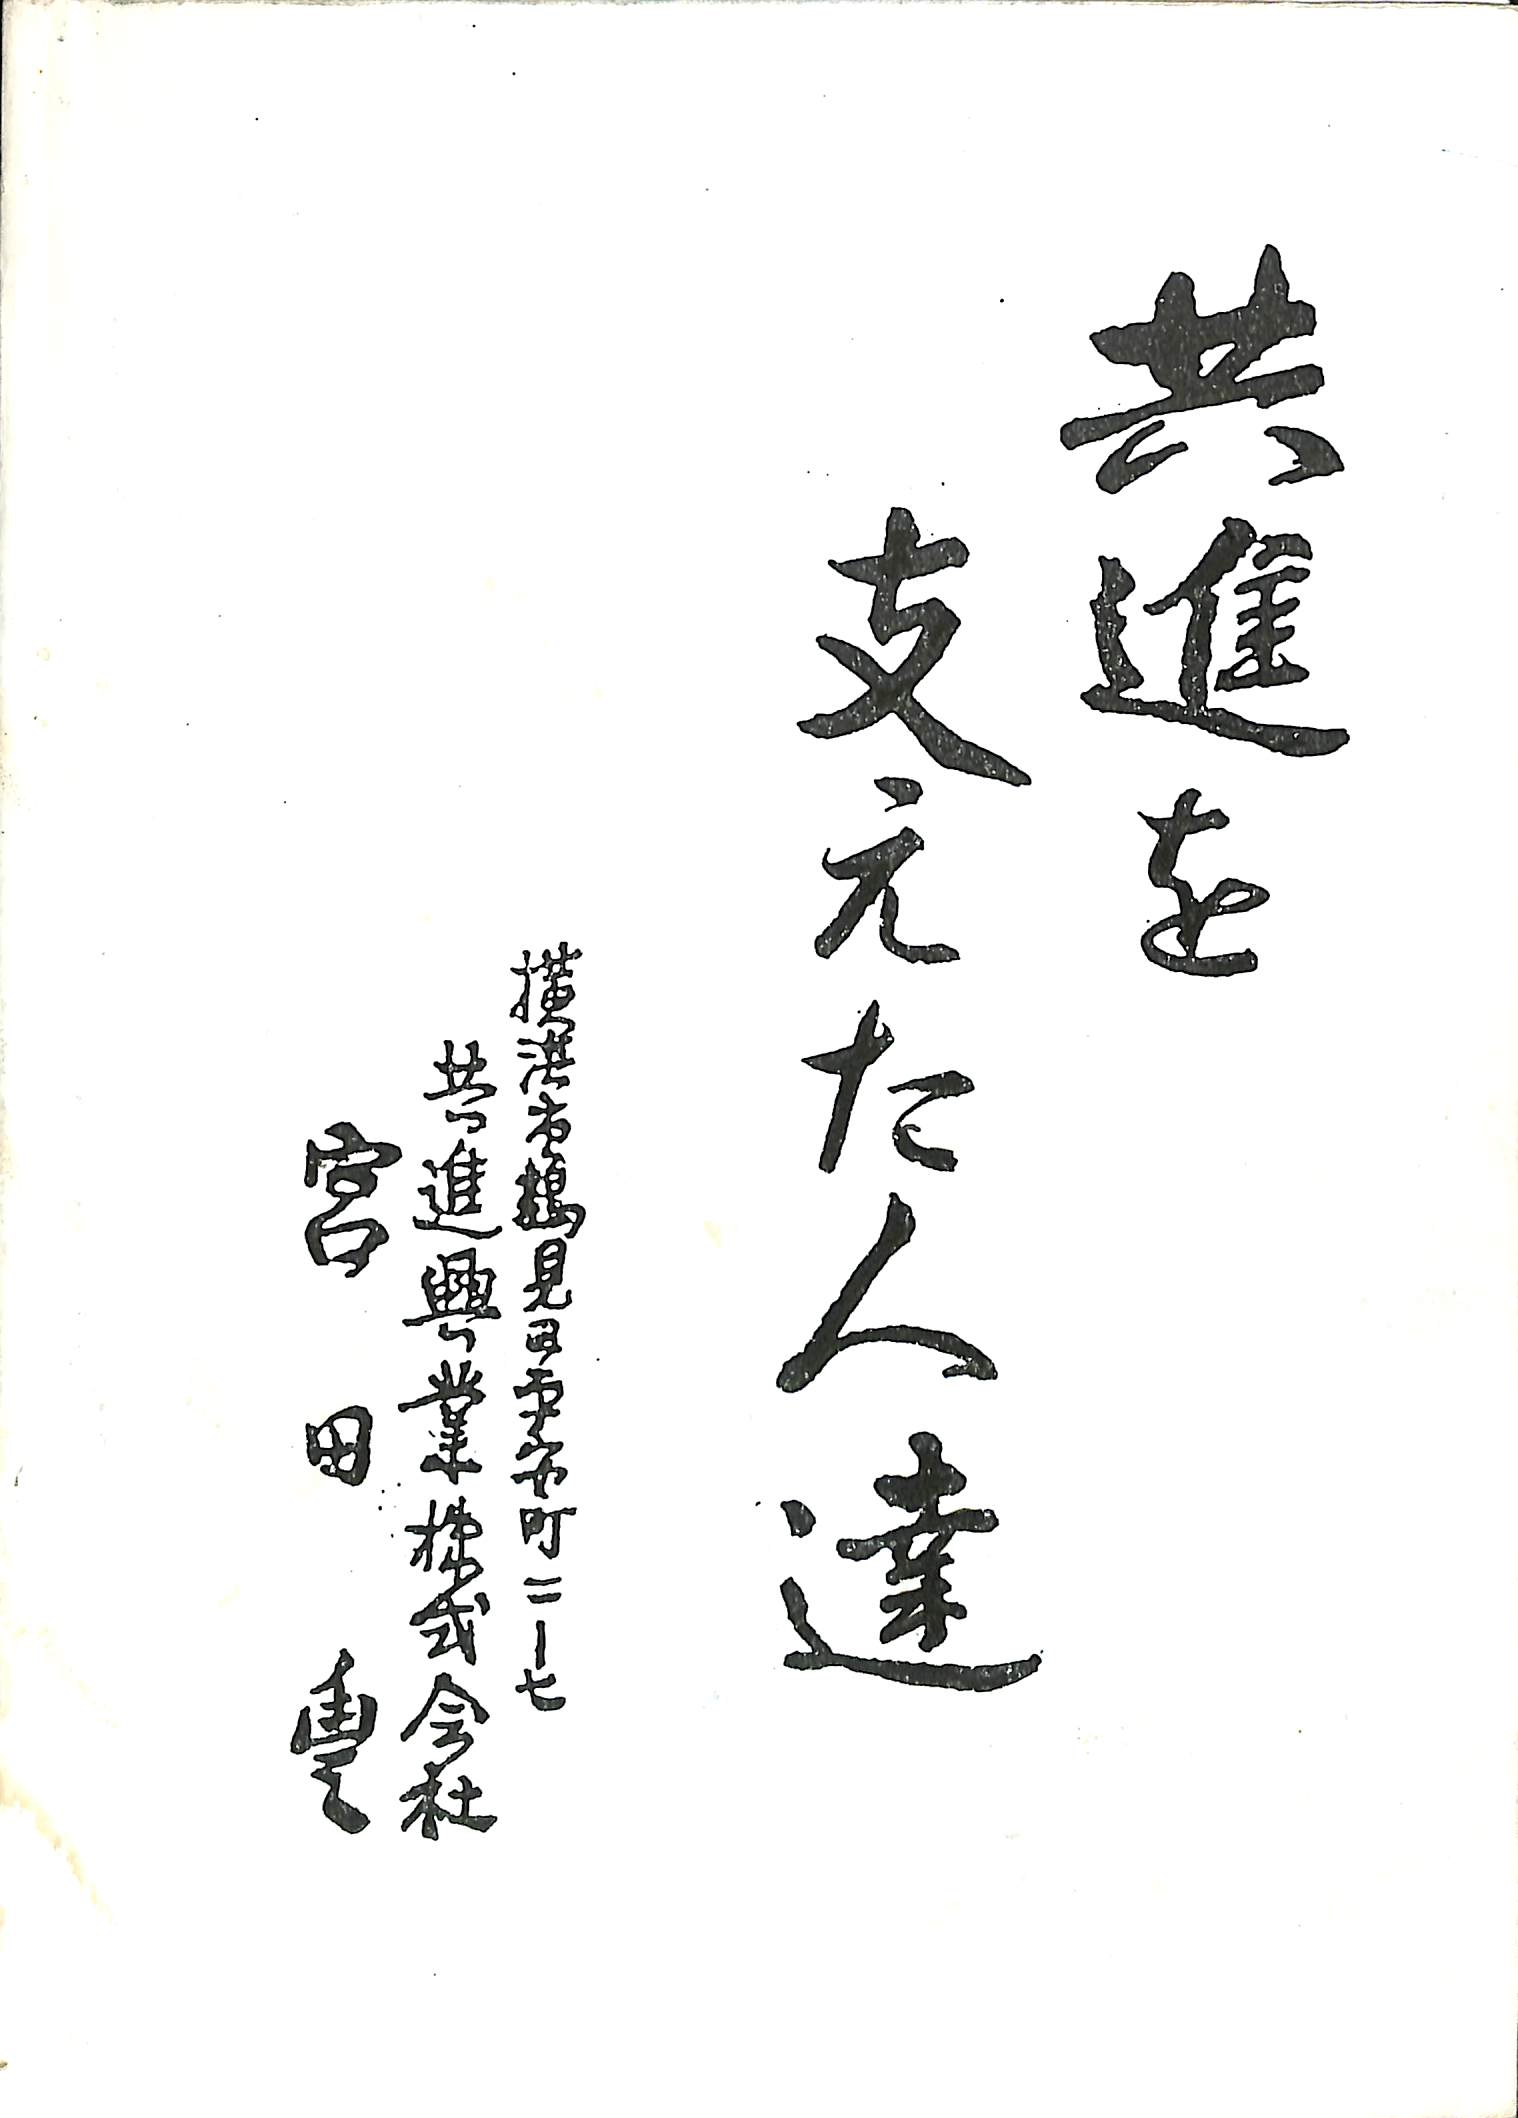 共進を
支えた人達
横浜市鶴見区平安町二ー七
共進興業株式会社
宮田豊